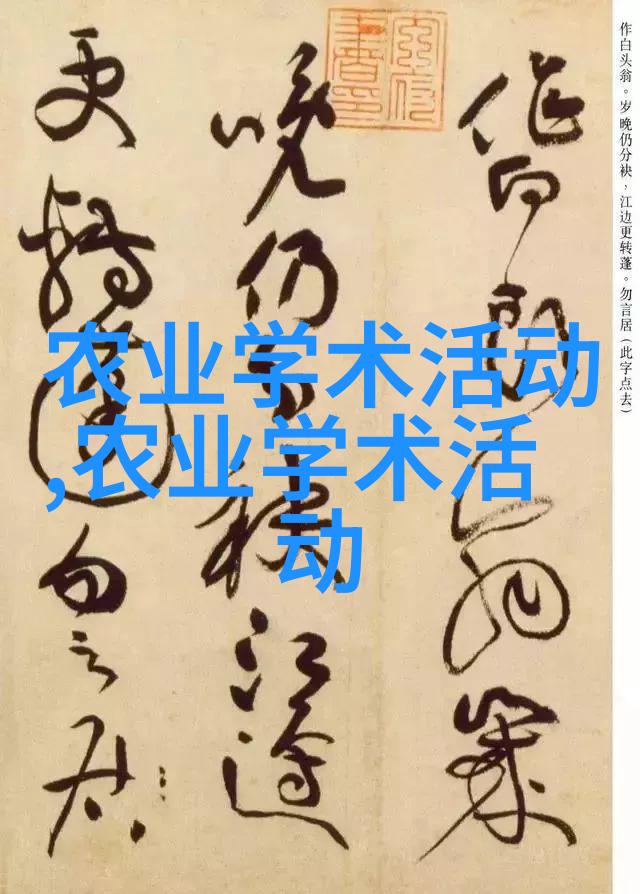 作白头翁。岁晚仍分袂，江边更转蓬。勿言居（此字点去）
作白头翁岁
晚仍分袂江边
更转蓬勿言居
农业学术活动
,农业学术活
动